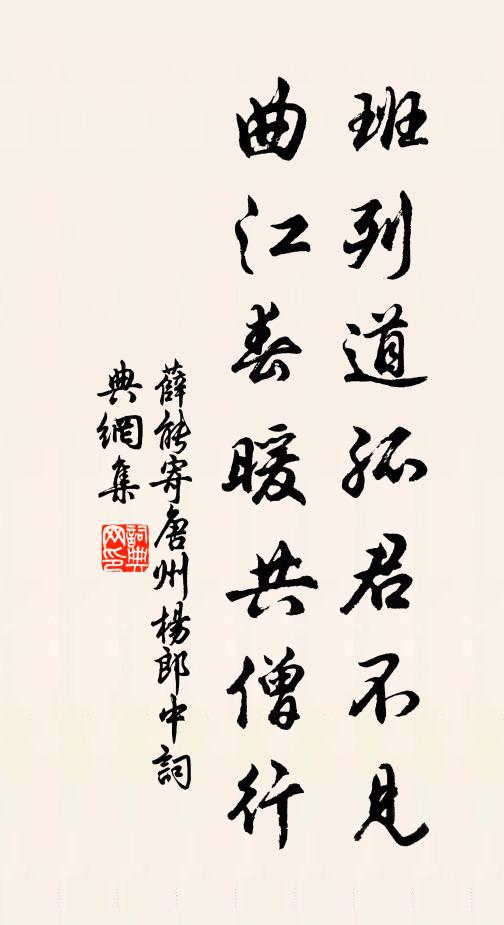 班列道孤君不見
曲江春暖共僧行
薛能寄唐州楊郎中詞
典網集
詞典
网印